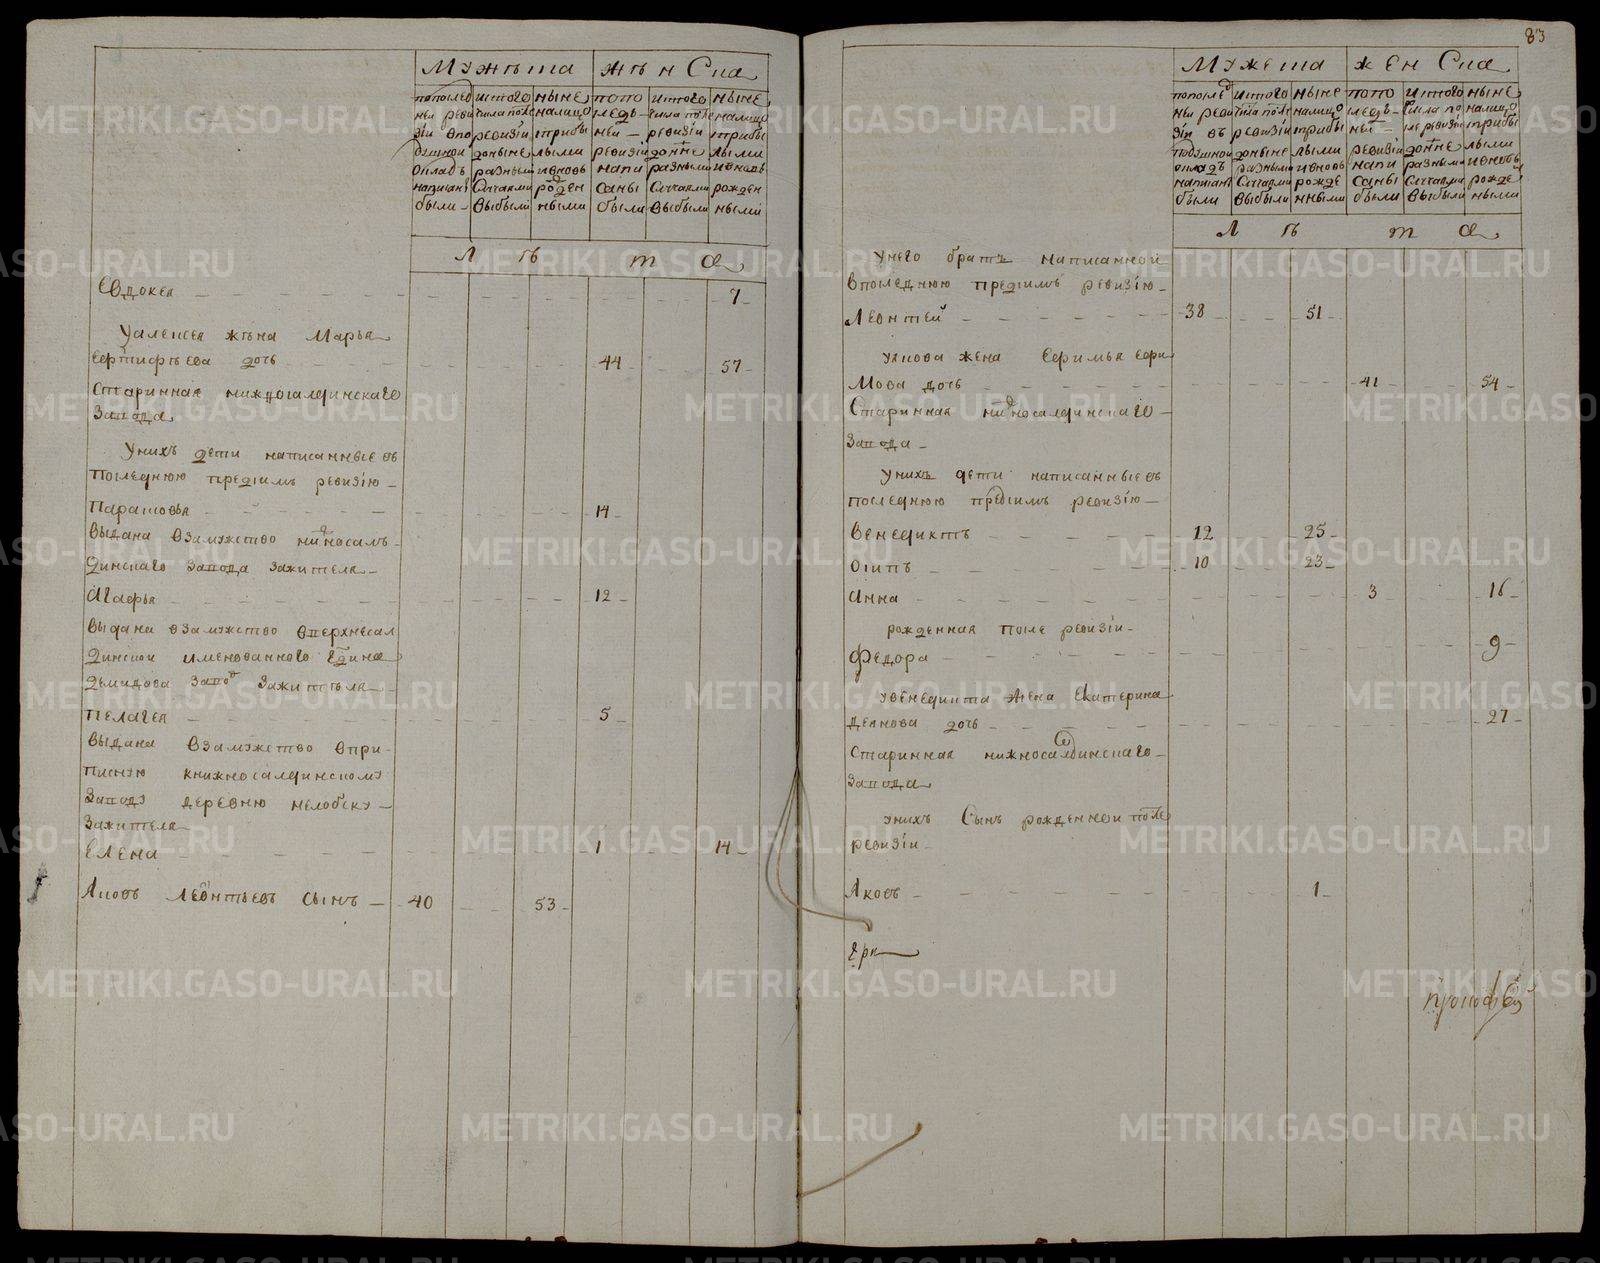 83
Мужъска женска
пополед
ней реви
зіи впо
душной
окладъ
написаны
были
истого
числа после
ревизіи
доныне
разными
случаями
выбыли
ныне
налицо
sприбы
лыми
ивновь
рожден
ными
попо
след
ней
ревизіи
напи
саны
были
истого
числа после
ревизіи
доныне
разными
случаями
выбыли
ныне
налицо
sприбы
лыми
ивновь
рожден
ными
Л ѣ т а
Евдокея 7
Уалексея жена Марья
дочь 44 57
Старинная нижносалдинского
завода
Унихъ дети написанные въ
последнюю предсимъ ревизію
Парасковья 14
выдана взамужство нижносалъ
динского завода зажителя
Агафья 12
выдана взамужство вверхнесал
динской именованного Гдина
демидова завод зажителя
Пелагея 5
выдана взамужство впри
писную книжносалдинскому
заводу деревню нелобску
зажителя
Елена 1 14
Яковъ Леонтьевъ сынъ 40 53
Мужеска женска
пополед
ней реви
зіи въ
подушной
окладъ
написаны
были
истого
числа после
ревизіи
доныне
разными
случаями
выбыли
ныне
налицо
sприбы
лыми
ивновь
рожде
нными
попо
след
ней
ревизіи
напи
саны
были
истого
числа по
сле ревизіи
доныне
разными
случаями
выбыли
ныне
налицо
sприбы
лыми
ивновь
рожден
ными
Л ѣ т а
Унего братъ написанной
впоследнюю предсимъ ревизію
Леонтей 38 51
Уякова жена Серимья Ефи
мова дочь 41 54
Старинная нижносалдинского
завода
Унихъ дети написанные въ
последнюю предсимъ ревизію
Венедиктъ 12 25
Осипъ 10 23
Анна 3 16
рожденная после ревизіи
Федора 9
Увенедикта жена Екатерина
деянова дочь 27
Старинная нижносалдинского
завода
Унихъ Сынъ рожденной после
ревизіи
Яковъ 1
Прокофей